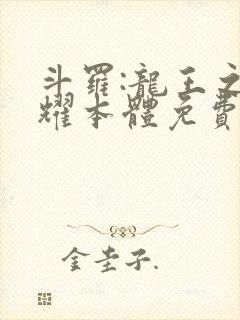 斗羅:龍王之
耀本體免費
金圭子.